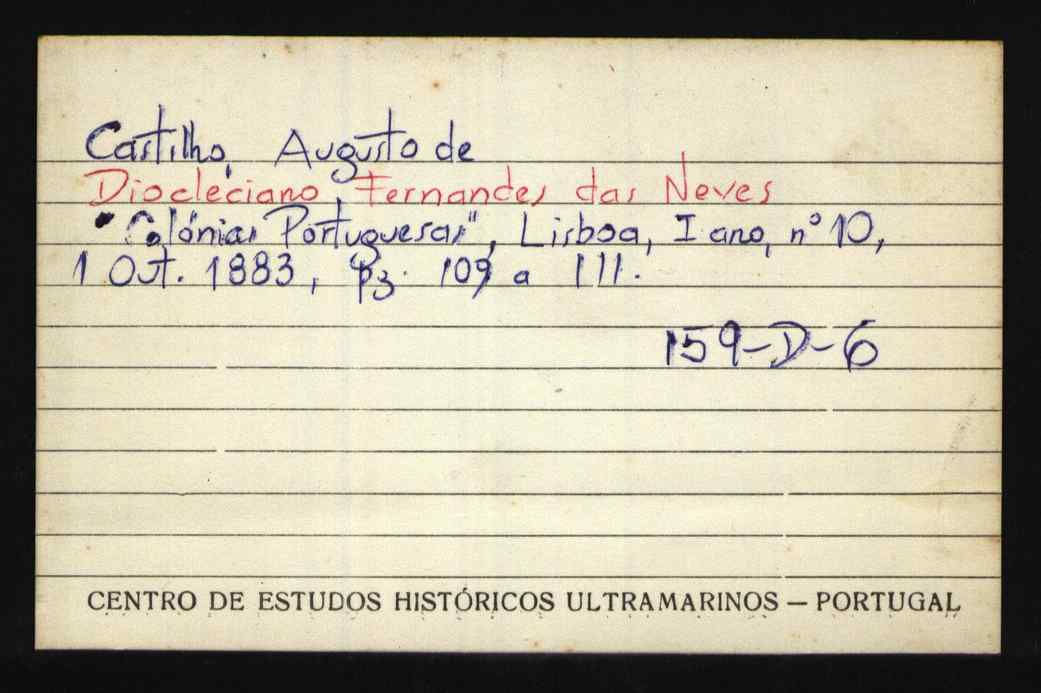 Castilho, Augusto de
Diocleciano Fernandes das Neves
"Colónias Portuguesas", Lisboa, I ano, nº 10,
1 Out. 1883, pg. 109 a 111.
159-D-6
CENTRO DE ESTUDOS HISTÓRICOS ULTRAMARINOS — PORTUGAL